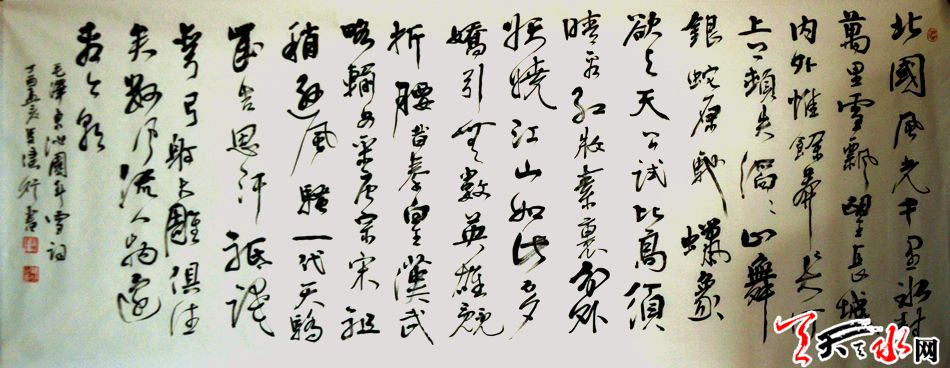 北國風光千里冰封
萬里雪飄望長城
内外惟餘莽
上下頓失滔〻山舞
銀蛇原馳蠟象
欲与天公試比高須
晴看紅妝素裹分外
妖嬈江山如此多
嬌引無數英雄競
折腰昔秦皇漢武
略輸文采唐宗宋祖
稍遜風騷一代天驕
成吉思汗祇識
彎弓射大雕俱往
矣數風流人物還
看今朝
毛澤東沁園春雪詞
丁酉 行書
天天水网